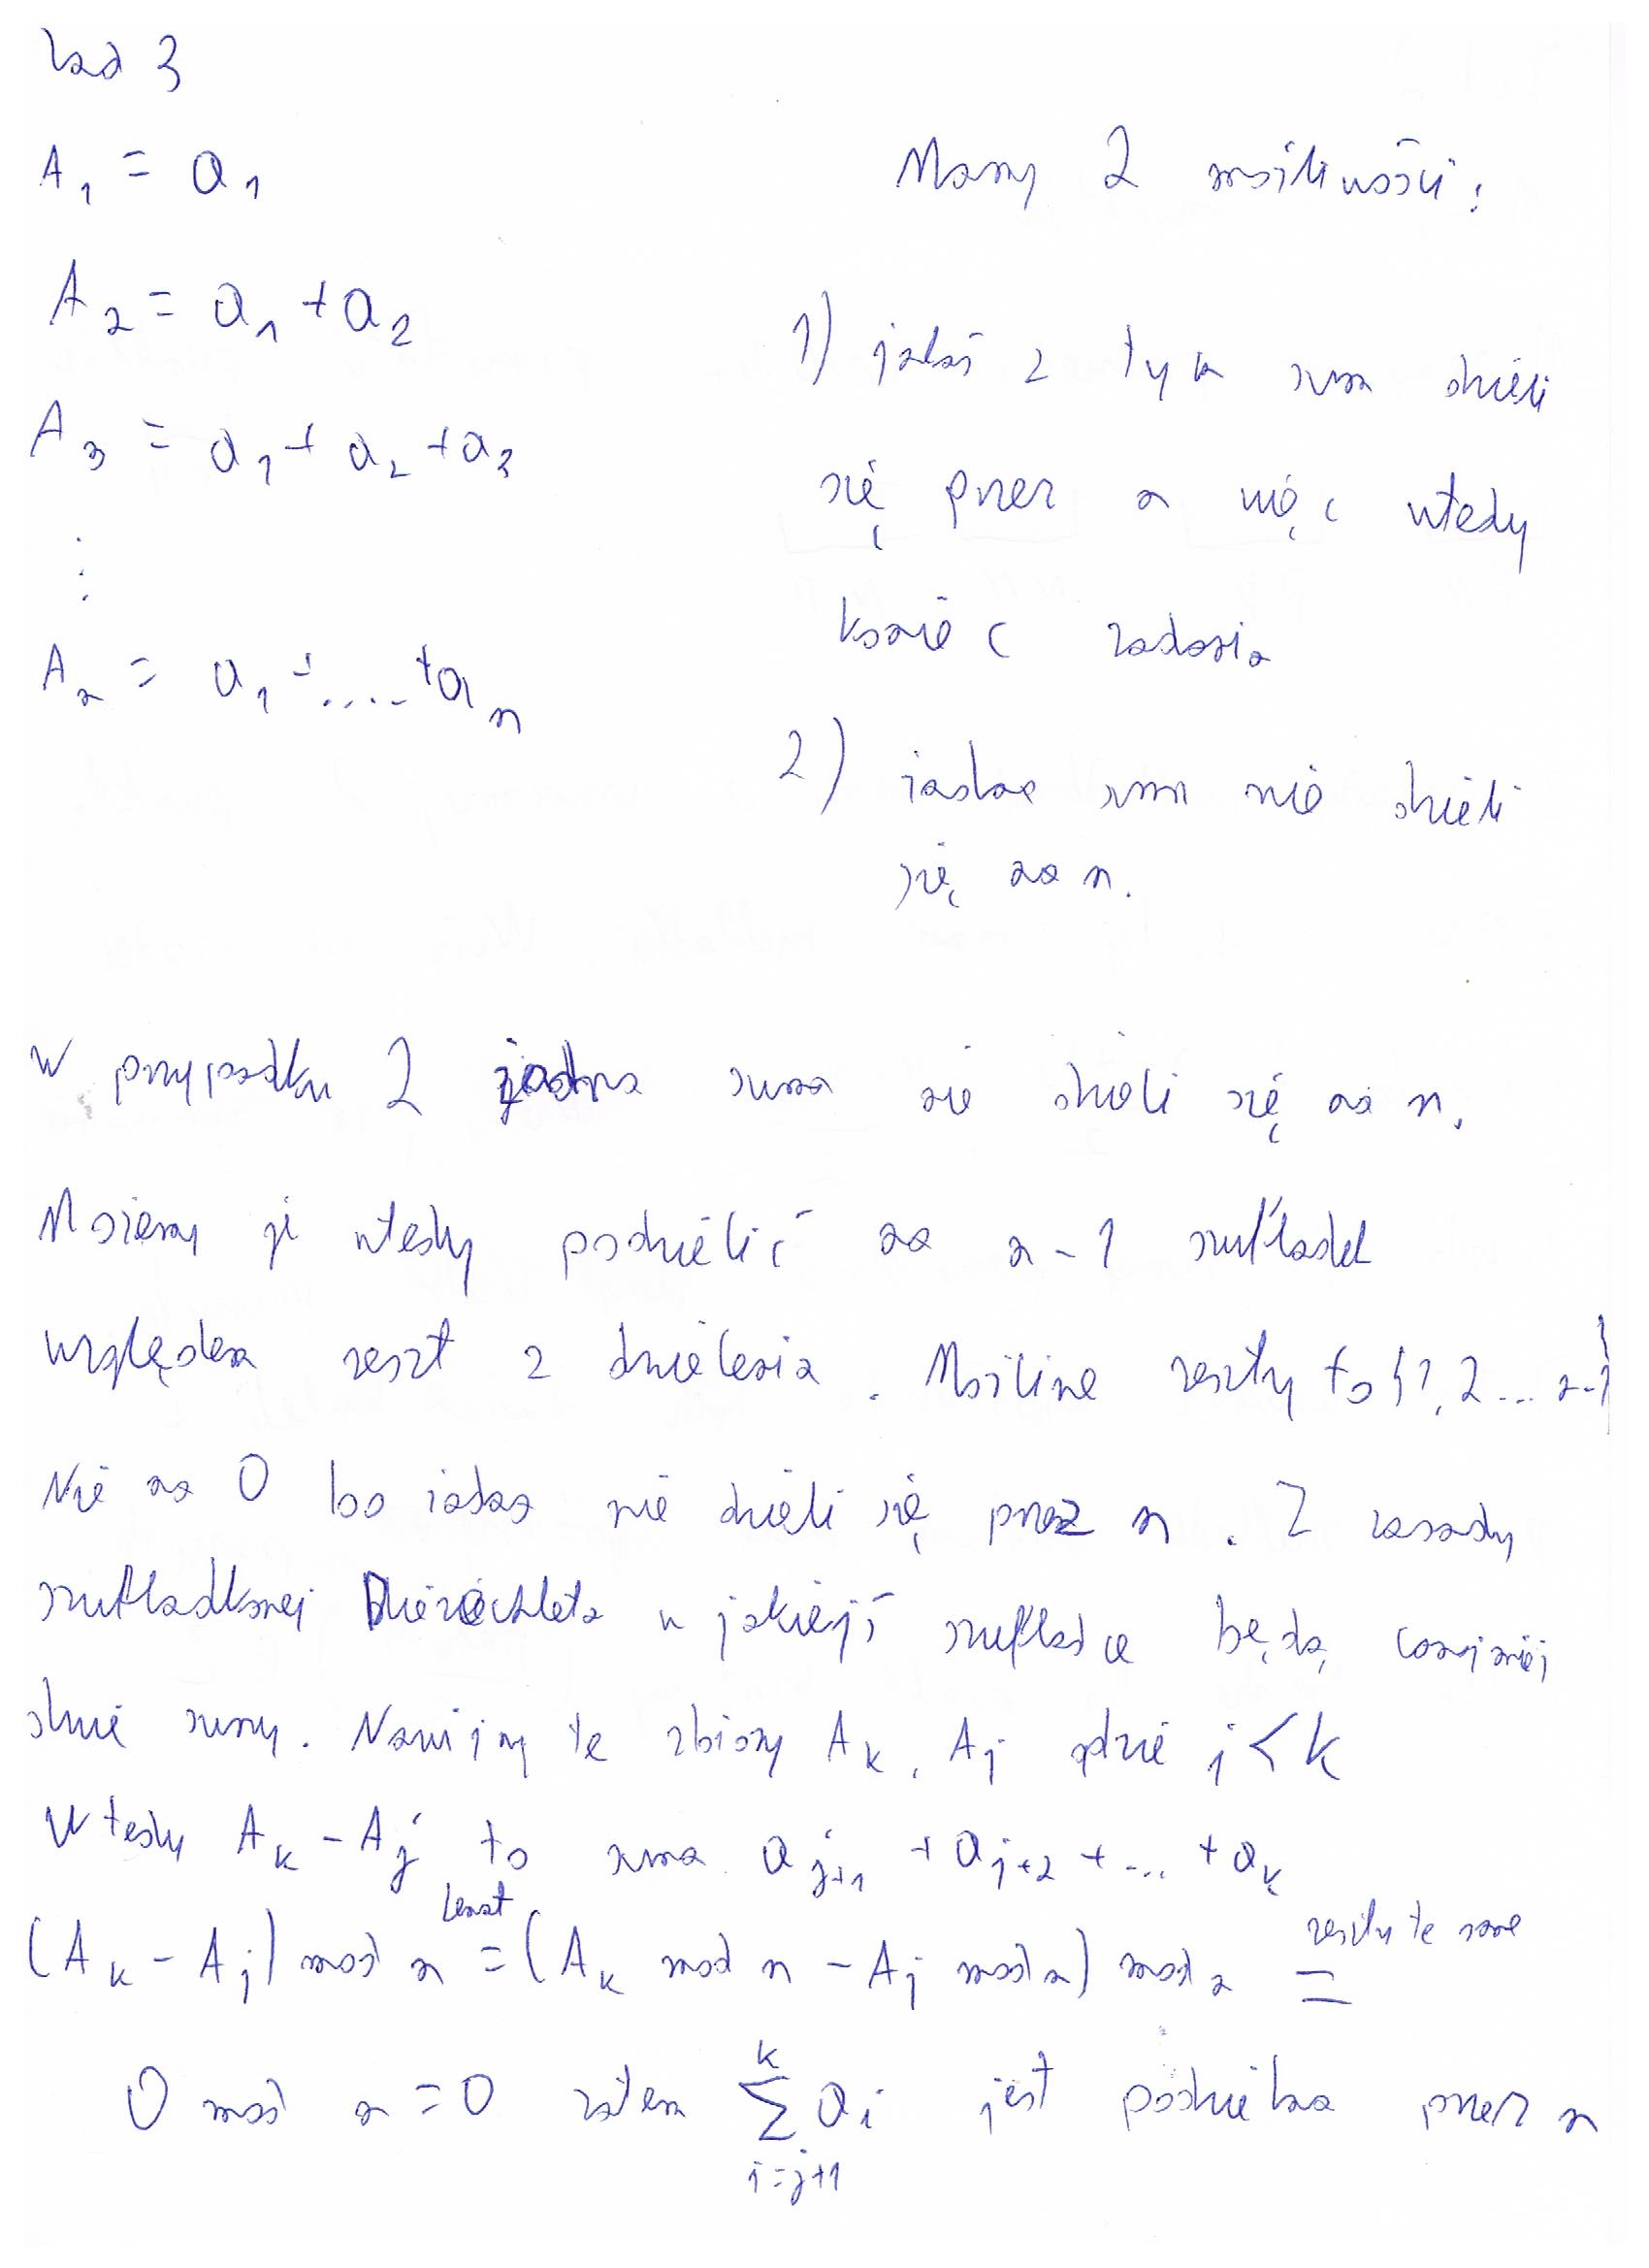 Zad 3
A₁ = a₁
A₂ = a₁ + a₂
A₃ = a₁ + a₂ + a₃
⋮
Aₙ = a₁ + .... + aₙ
Mamy 2 możliwości:
1) jakaś z tych sum dzieli
się przez n więc wtedy
koniec zadania
2) żadna suma nie dzieli
się na n.
W przypadku 2 żadna suma nie dzieli się na n.
Możemy je wtedy podzielić na n-1 szufladek
względem reszt z dzielenia. Możliwe reszty to {1, 2 ... n-1}
Nie ma 0 bo żadna nie dzieli się przez n. Z zasady
szufladkowej Dirichleta w jakiejś szufladce będą conajmniej
dwie sumy. Nazwijmy te zbiory Aₖ, Aⱼ gdzie j < k
Wtedy Aₖ - Aⱼ to suma aⱼ₊₁ + aⱼ₊₂ + ... + aₖ
(Aₖ - Aⱼ) mod n = (Aₖ mod n - Aⱼ mod n) mod n = reszty te same
0 mod n = 0 zatem ∑ᵢ₌ⱼ₊₁ᵏ aᵢ jest podzielna przez n